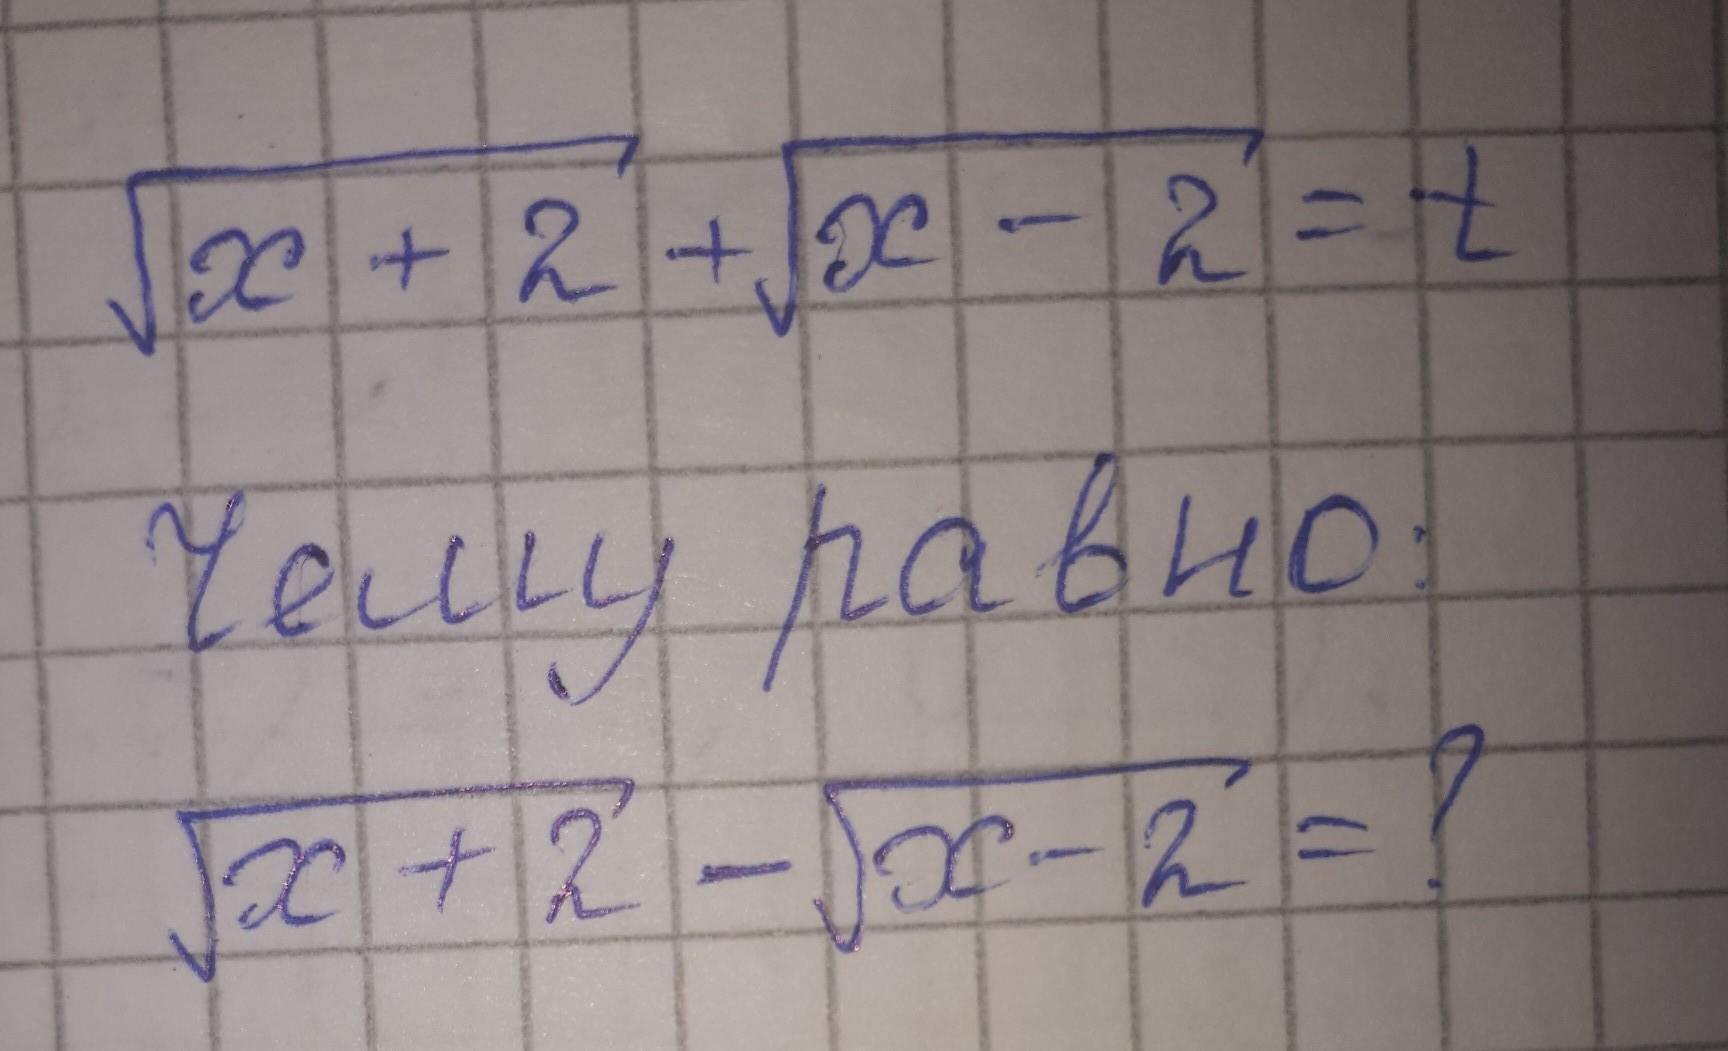 √x + 2 + √x - 2 = t
Чему равно:
√x + 2 - √x - 2 = ?